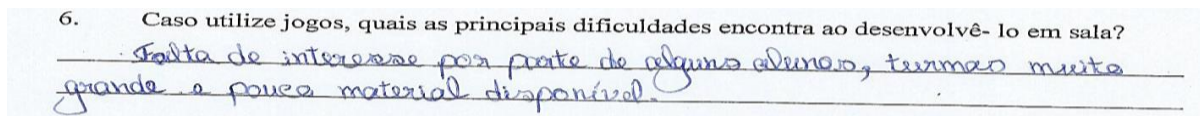 6. Caso utilize jogos, quais as principais dificuldades encontra ao desenvolvê- lo em sala?
Falta de interesse por parte de alguns alunos, turmas muito
grande e pouco material disponível.